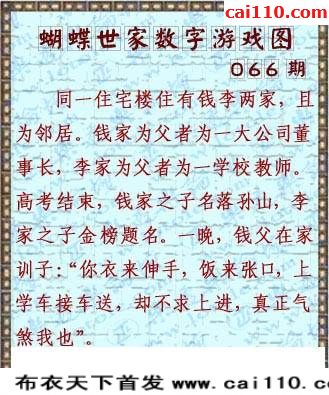 cai110.com
蝴蝶世家数字游戏图
066 期
同一住宅楼住有钱李两家，且
为邻居。钱家为父者为一大公司董
事长，李家为父者为一学校教师。
高考结束，钱家之子名落孙山，李
家之子金榜题名。一晚，钱父在家
训子：“你衣来伸手，饭来张口，上
学车接车送，却不求上进，真正气
煞我也”。
布衣天下首发 www.cai110.c